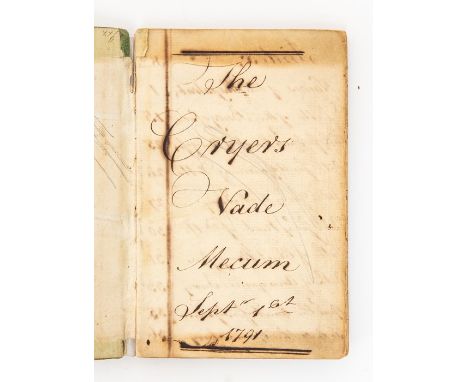 The
Cryers
Vade
Mecum
Septr 1st
1791